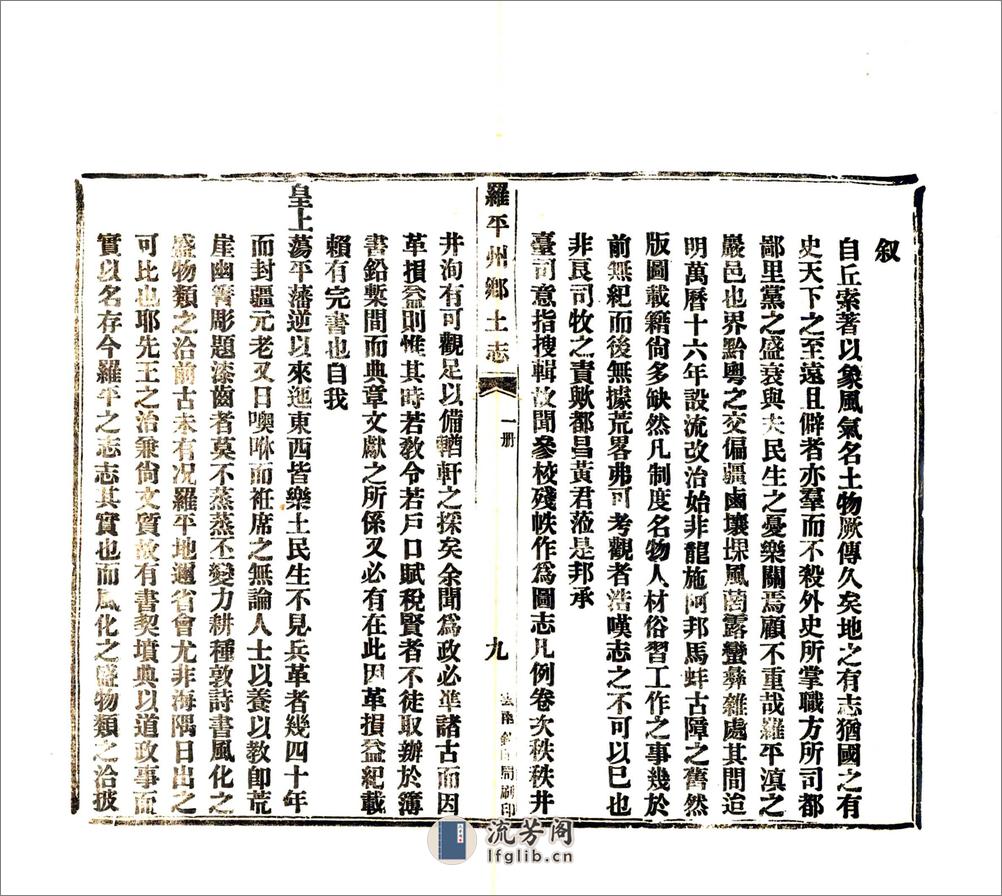 叙
自丘索著以象風氣名土物厥傳久矣地之有志猶國之有
史天下之至遠且僻者亦羣而不殺外史所掌職方所司都
鄙里黨之盛衰與夫民生之憂樂關焉顧不重哉羅平滇之
巖邑也界黔粵之交偏疆鹵壤堁風菌露蠻彝雜處其間迨
明萬曆十六年設流改治始非龍施阿邦馬蚌古障之舊然
版圖載籍尙多缺然凡制度名物人材俗習工作之事幾於
前無紀而後無據荒畧弗可考觀者浩嘆志之不可以已也
非良司牧之責歟都昌黃君蒞是邦承
臺司意指搜輯故聞參校殘帙作爲圖志凡例卷次秩秩井
羅平州鄉土志
一册
九
雲南 官印局刷印
井洵有可觀足以備輶軒之採矣余聞爲政必準諸古而因
革損益則惟其時若敎令若戶口賦稅賢者不徒取辦於簿
書鉛槧間而典章文獻之所係又必有在此因革損益紀載
賴有完書也自我
皇上蕩平藩逆以來迤東西皆樂土民生不見兵革者幾四十年
而封疆元老又日噢咻而袵席之無論人士以養以教卽荒
崖幽箐彫題漆齒者莫不蒸蒸丕變力耕種敦詩書風化之
盛物類之洽前古未有况羅平地邇省會尤非海隅日出之
可比也耶先王之治兼尙文質故有書契墳典以道政事而
實以名存今羅平之志志其實也而風化之盛物類之洽披
流芳阁
lfglib.cn